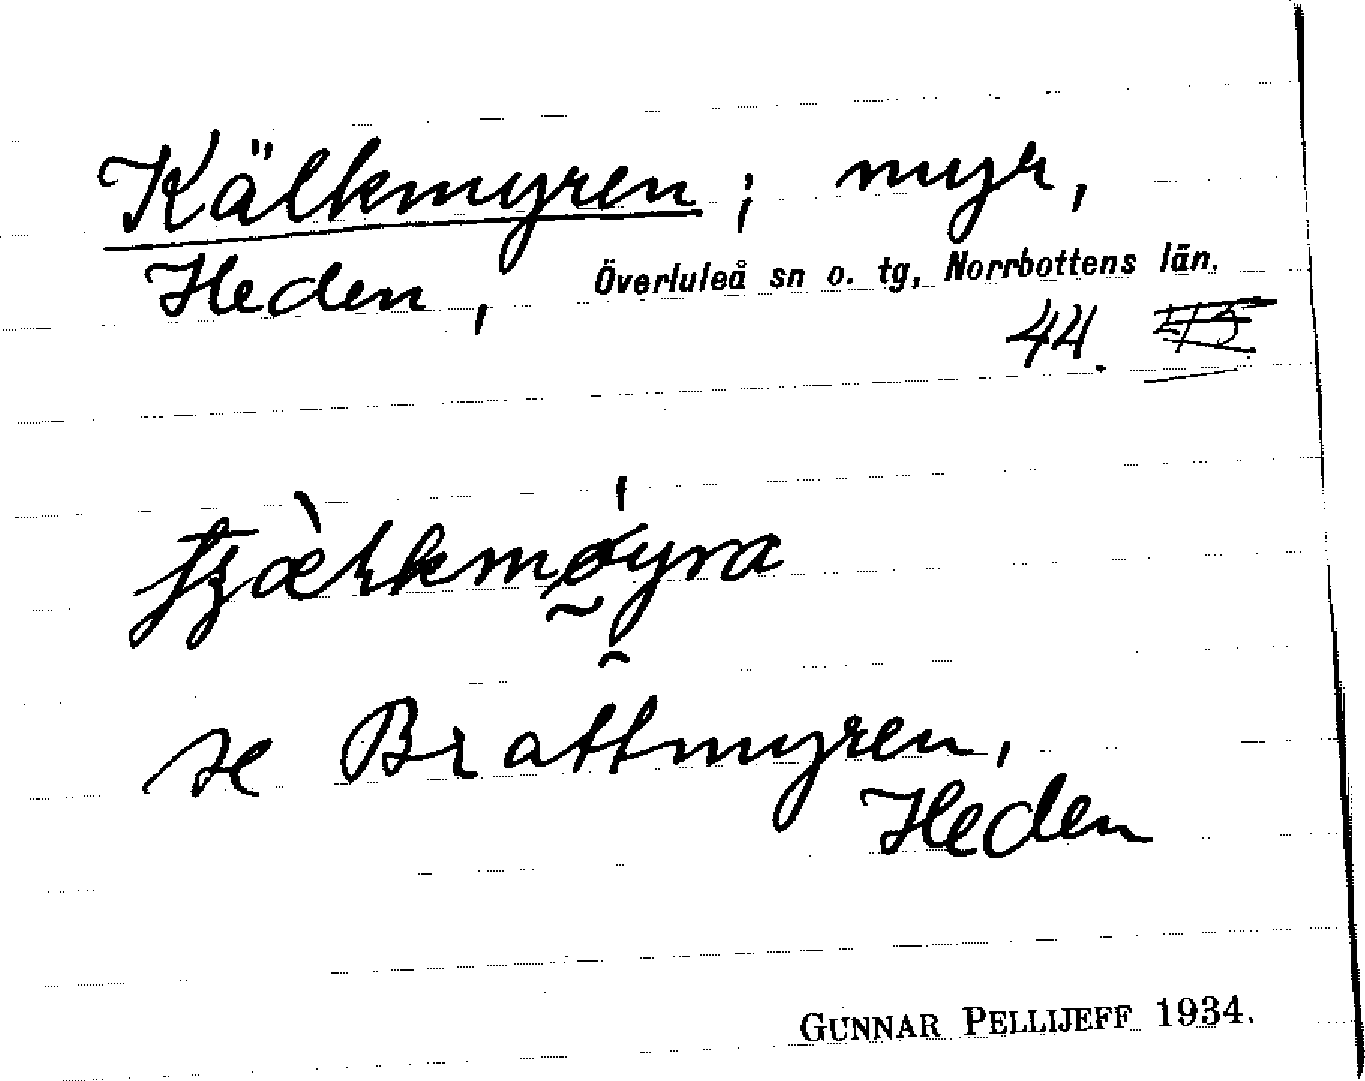 Kälkmyren; myr,
Heden, Överluleå sn o. tg, Norrbottens län.
44.
se Brattmyren,
Heden
GUNNAR PELLIJEFF 1934.